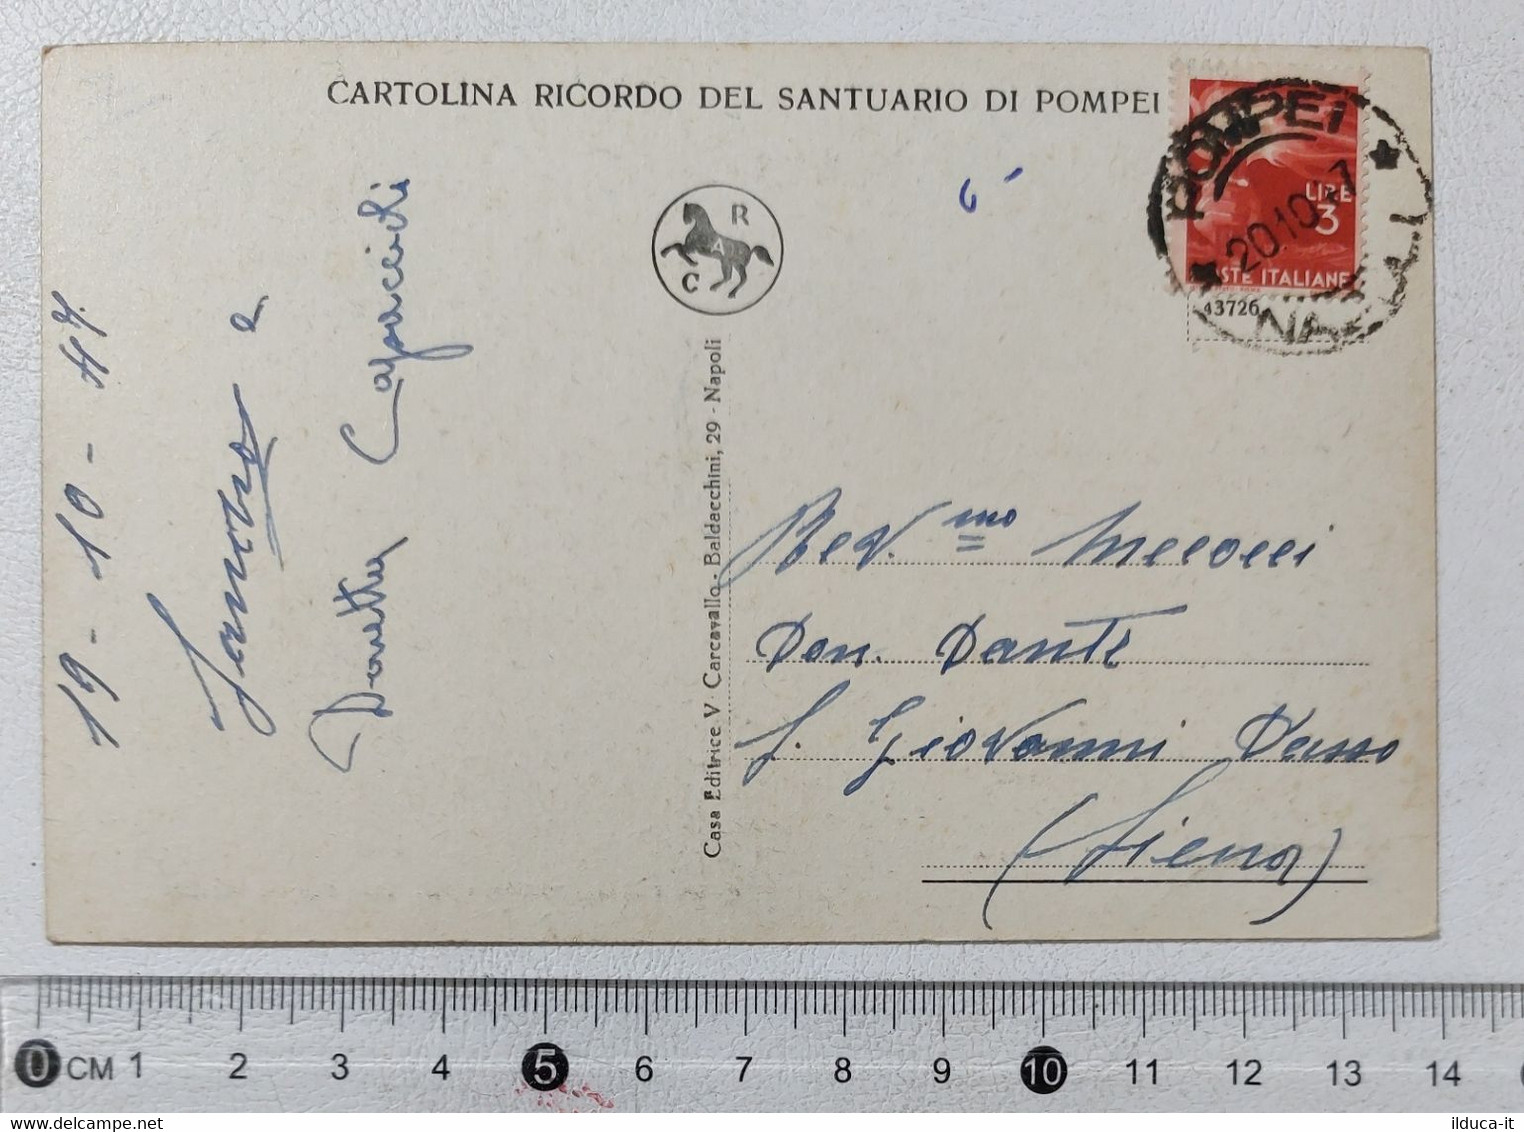 CARTOLINA RICORDO DEL SANTUARIO DI POMPEI
R
A
C
POMPEI
20.10
NAPOLI
LIRE
3
POSTE ITALIANE
43726
19-10-47.
e
Casa Editrice V. Carcavallo - Baldacchini, 29 - Napoli
Rev.mo Meloni
Don. Dante
S. Giovanni Dasso
(Siena)
0 CM 1 2 3 4 5 6 7 8 9 10 11 12 13 14
delcampe.net
ilduca-it